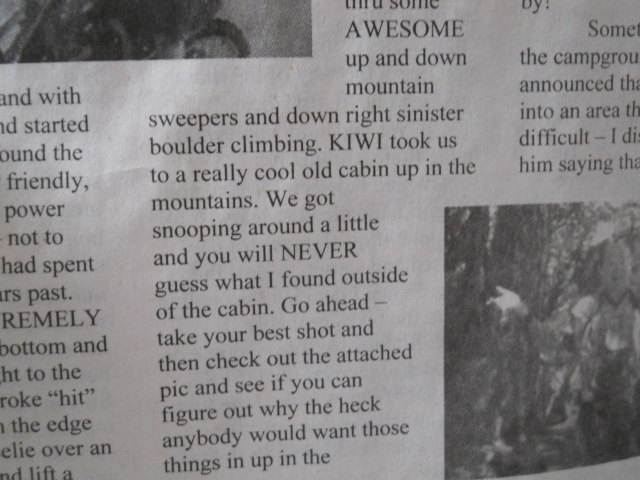 and with
started
the
friendly,
power
not to
had spent
past.
bottom and
to the
"hit"
the edge
over an
lift a
thru some
AWESOME
up and down
mountain
sweepers and down right sinister
boulder climbing. KIWI took us
to a really cool old cabin up in the
mountains. We got
snooping around a little
and you will NEVER
guess what I found outside
of the cabin. Go ahead –
take your best shot and
then check out the attached
pic and see if you can
figure out why the heck
anybody would want those
things in up in the
by!
the
announced
into an area
difficult – I
him saying